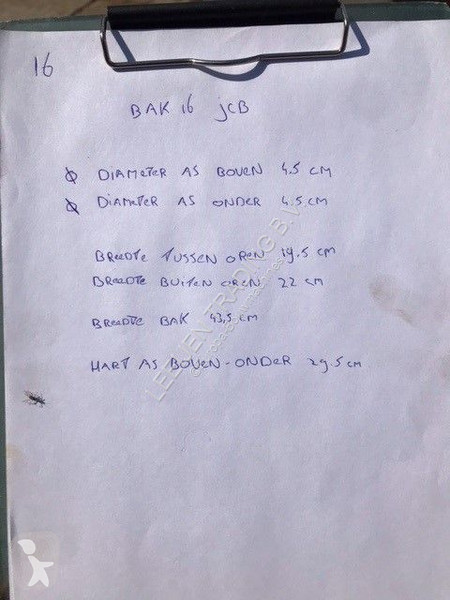 16
BAK 16 jCB
Ø DIAMETER AS BOVEN 4.5 CM
Ø DIAMETER AS ONDER 4.5 CM
BREEDTE TUSSEN OREN 19.5 CM
BREEDTE BUITEN OREN 22 CM
BREEDTE BAK 43,5 CM
HART AS BOVEN-ONDER 29.5 CM